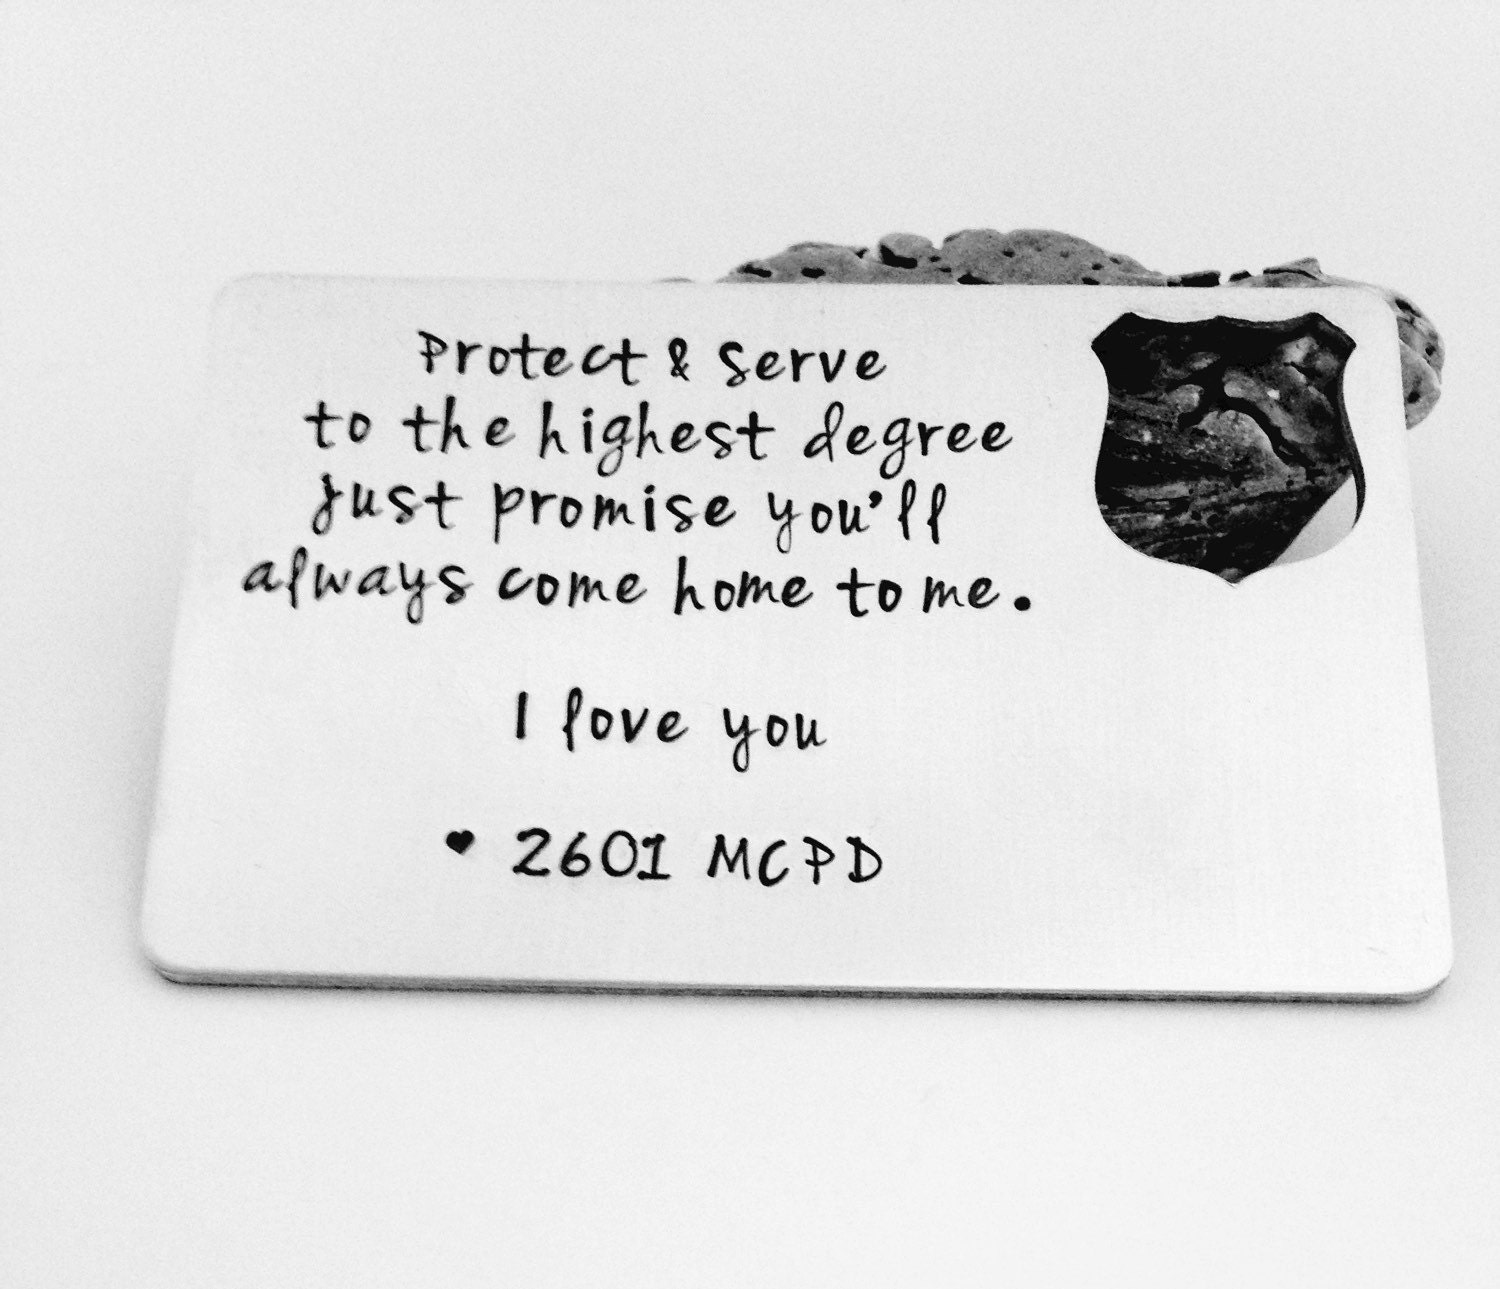 Protect & Serve
to the highest degree
Just promise you'll
always come home to me.
I love you
♥ 2601 MCPD